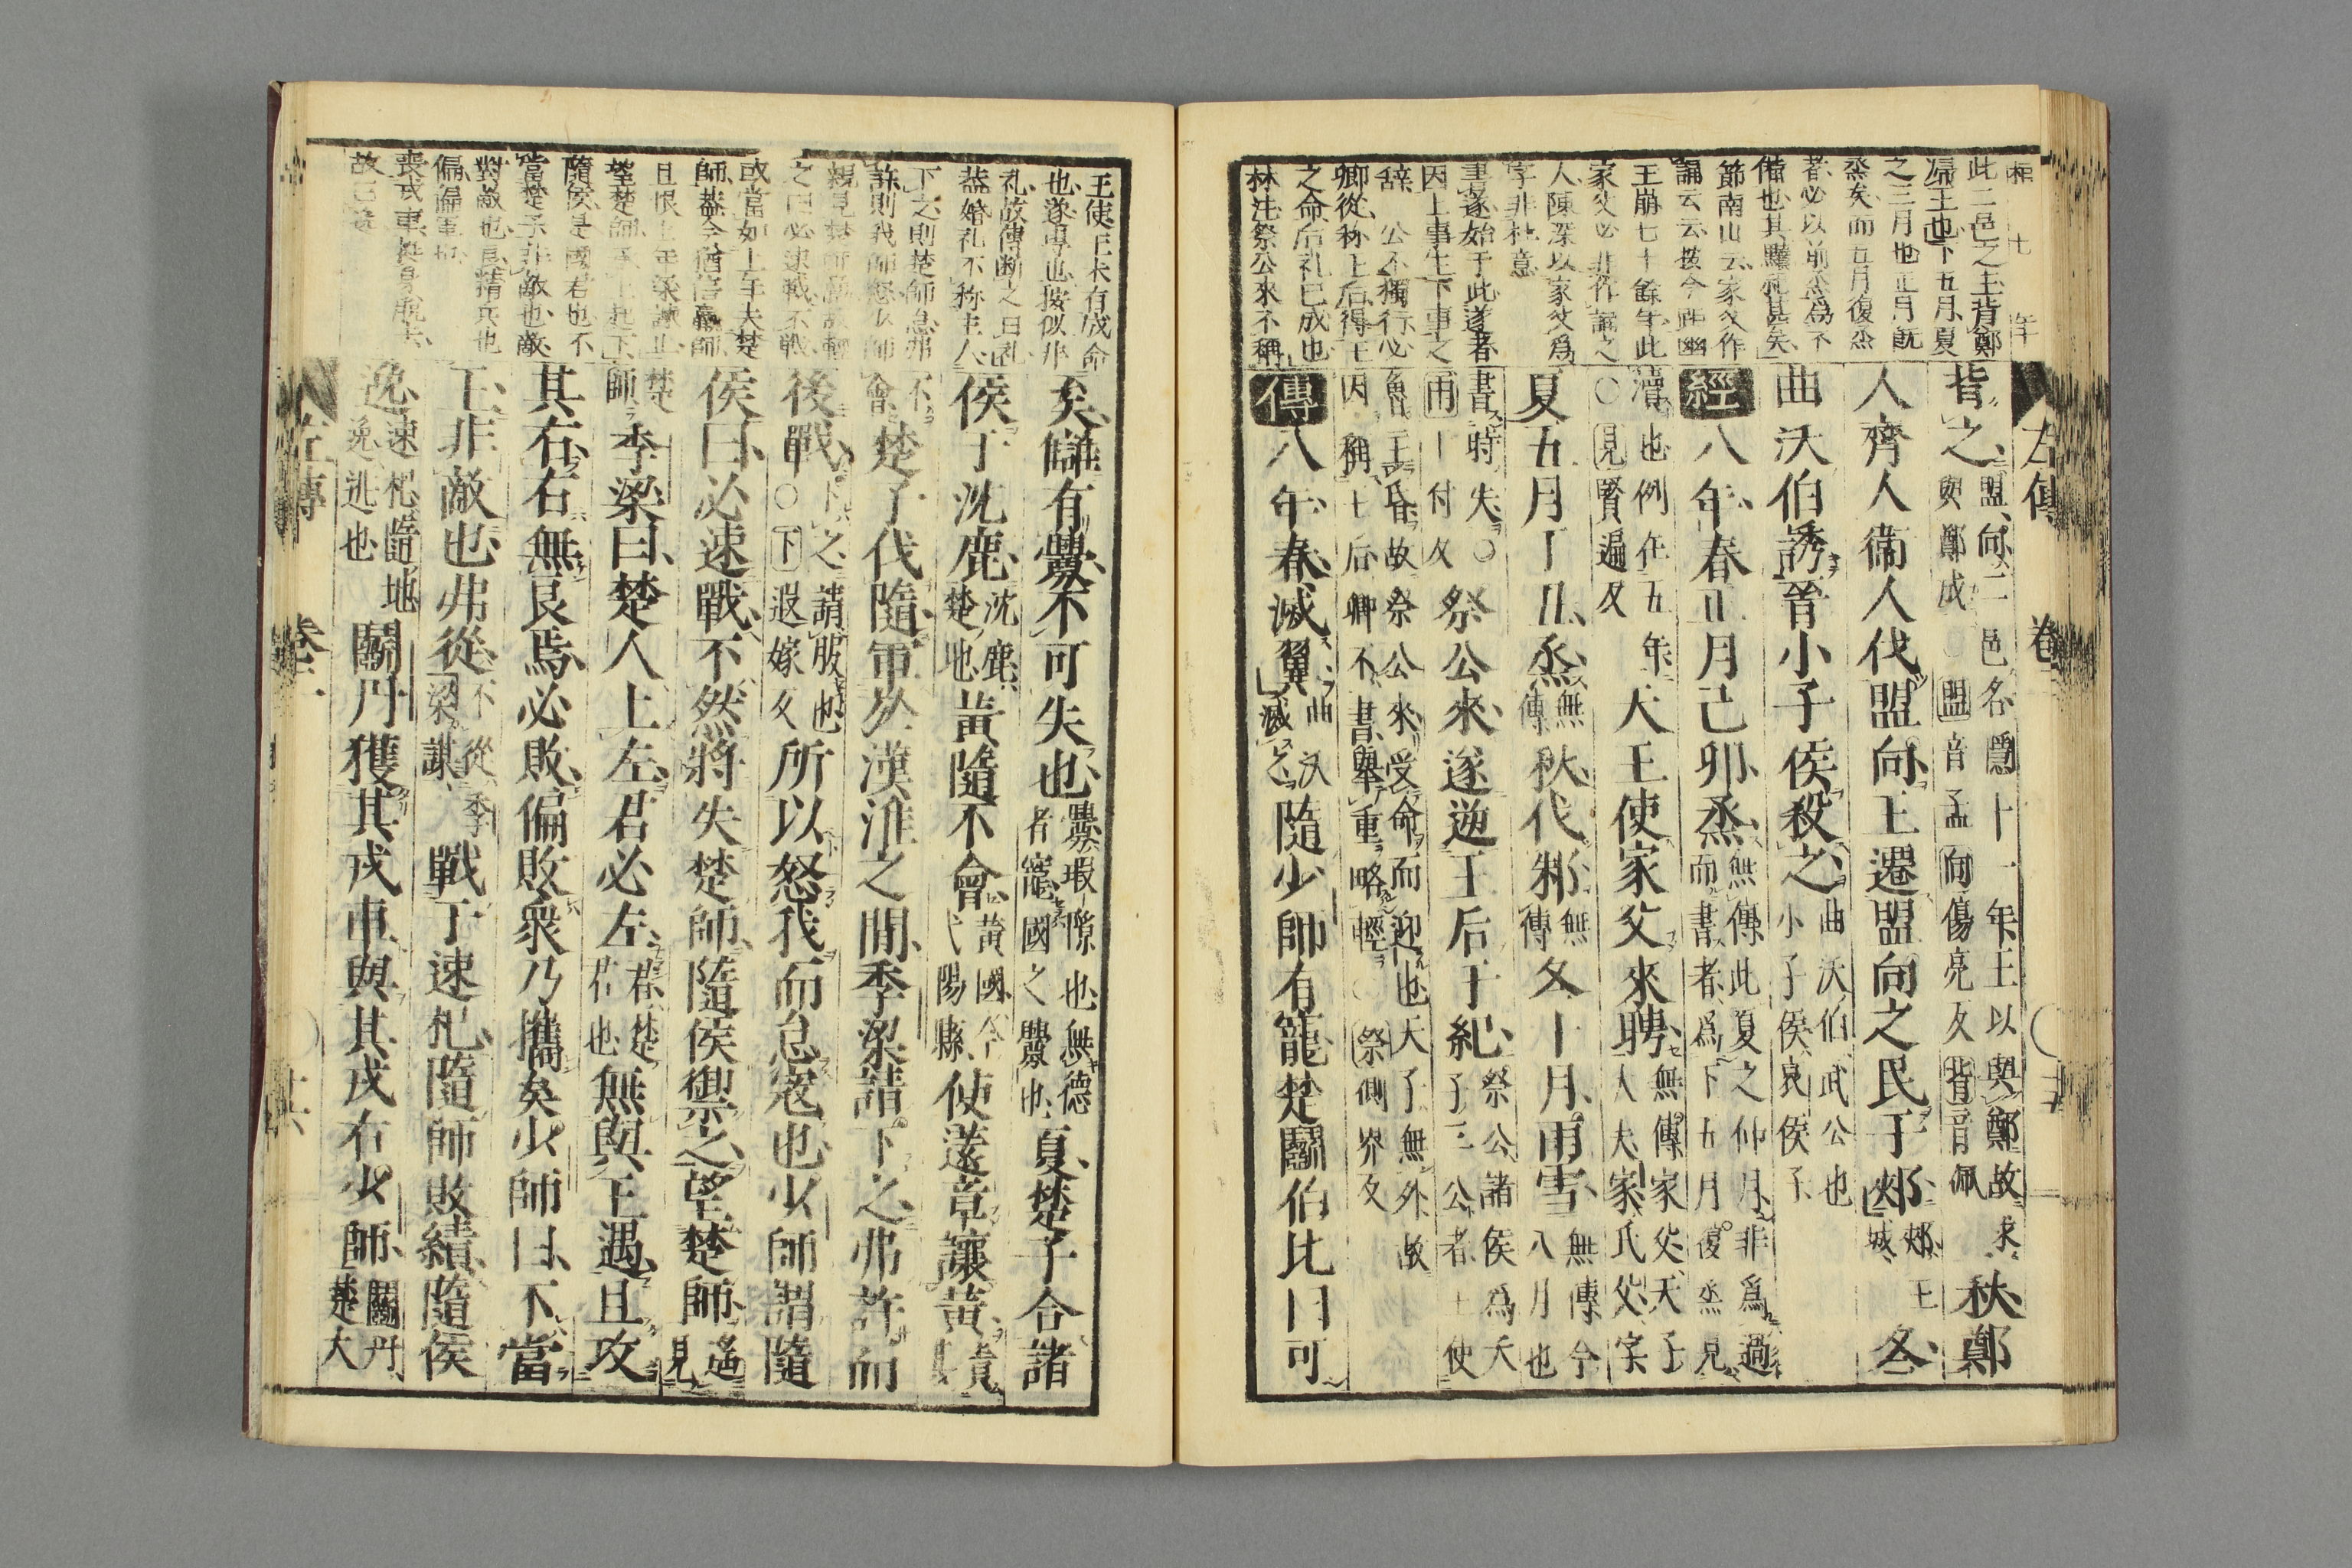 桓七年
此二邑之王背鄭
歸王也下五月夏
之三月也正月既
烝矣而五月復烝
者必以前烝爲不
備也其黷祀甚矣
節南山云家父作
誦云云按今此幽
王崩七十餘年此
家父必非作誦之
人陳深以家父爲
字非杜意
書遂始于此遂者
因上事生下事之
辭 公不獨行必
卿從称上后得王
之命后礼已成也
林注祭公來不稱
左傳 卷一
背之盟向二邑名隱十一年王以與鄭故求與鄭成○盟音孟向傷亮反背音佩秋鄭
人齊人衞人伐盟向王遷盟向之民于郟郟王城冬
曲沃伯誘晉小子侯殺之曲沃伯武公也小子侯哀侯子
經八年春正月己卯烝無傳此夏之仲月非爲過而書者爲下五月復烝見
瀆也例在五年○見賢遍反天王使家父來聘無傳家父天子大夫家氏父字
夏五月丁丑烝無傳秋伐邾無傳冬十月雨雪無傳今八月也
書時失○雨于付反祭公來遂逆王后于紀祭公諸侯爲天子三公者王使
魯主昏故祭公來受命而迎也天子無外故因稱王后卿不書舉重略輕○祭側界反
傳八年春滅翼曲沃滅之隨少師有寵楚鬭伯比曰可
王使王未有成命
也遂專也按似非
礼故傳断之曰礼
葢婚礼不称主人
下之則楚師怠弗
許則我師怒少師
親見楚師羸故輕
之曰必速戰不戰
或當如上年夫楚
師葢今猶信羸師
且恨上年梁諫止
望楚師
隨侯是國君也不
當楚子非敵也敵
對敵也良精兵也
偏偏軍也
喪戎車挺身脫去
故曰逸
矣讎有釁不可失也釁瑕隙也無德者寵國之釁也夏楚子合諸
侯于沈鹿沈鹿楚地黃隨不會黃國今弋陽縣使薳章讓黃責其
不會楚子伐隨軍於漢淮之間季梁請下之弗許而
後戰下之請服也○下遐嫁反所以怒我而怠寇也少師謂隨
侯曰必速戰不然將失楚師隨侯禦之望楚師遙見
楚師季梁曰楚人上左君必左君楚君也無與王遇且攻
其右右無良焉必敗偏敗衆乃攜矣少師曰不當
王非敵也弗從不從季梁謀戰于速杞隨師敗績隨侯
逸速杞隨地逸逃也鬭丹獲其戎車與其戎右少師鬭丹楚大
左傳 卷一